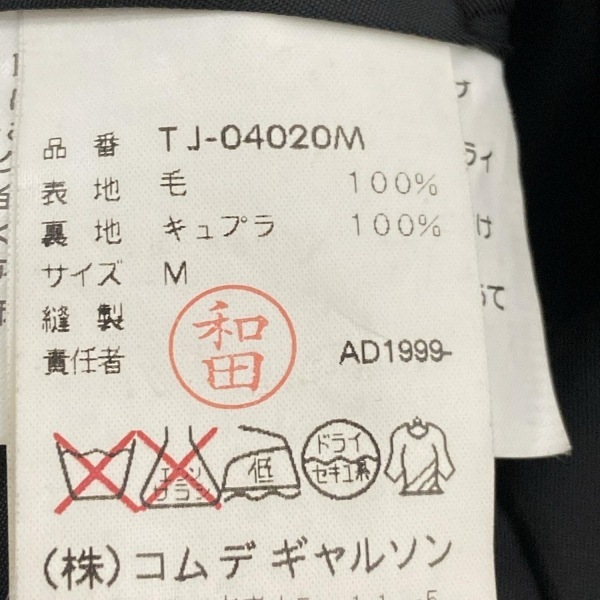 品番 TJ-04020M
表地 毛 100%
裏地 キュプラ 100%
サイズ M
縫製
責任者 和田 AD1999-
エンソ サラシ 低 ドライ セキユ系
(株)コムデギャルソン
サ
ライ
け
て